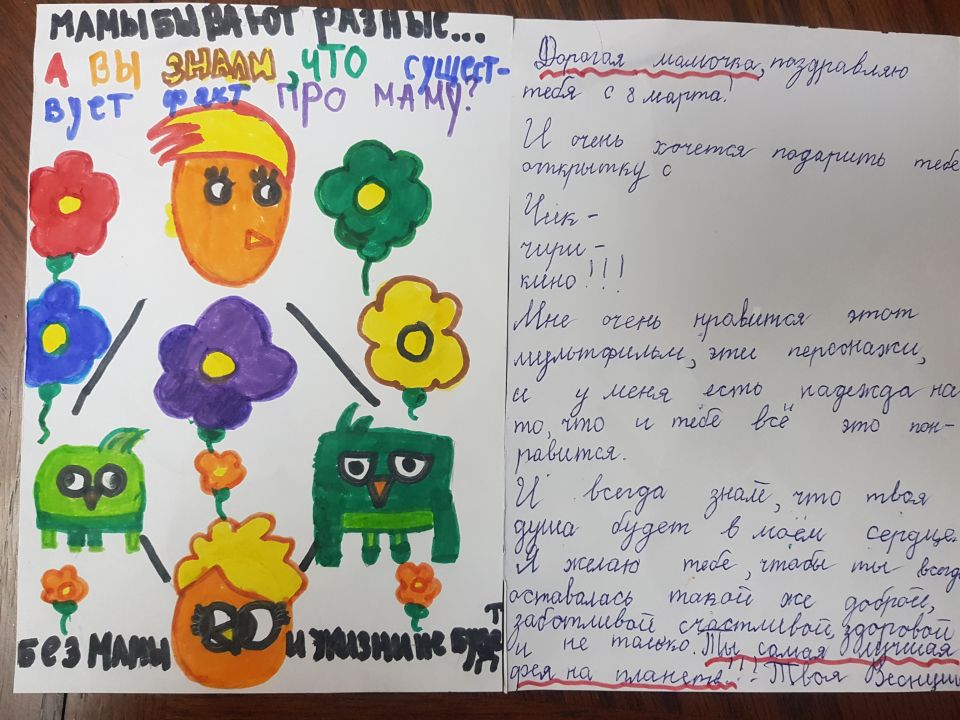 МАМЫ БЫВАЮТ РАЗНЫЕ...
А ВЫ ЗНАЛИ, ЧТО СУЩЕСТ-
ВУЕТ ФАКТ ПРО МАМУ?
БЕЗ МАМЫ И ЖИЗНИ НЕ БУДЕТ
Дорогая мамочка, поздравляю
тебя с 8 марта!
И очень хочется подарить тебе
открытку с
Чик-
чири-
кино!!!
Мне очень нравится этот
мультфильм, эти персонажи,
и у меня есть надежда на
то, что и тебе всё это пон-
равится.
И всегда знай, что твоя
душа будет в моём сердце.
Я желаю тебе, чтобы ты всегда
оставалась такой же доброй,
заботливой счастливой, здоровой
и не только. Ты самая лучшая
фея на планете!!! Твоя